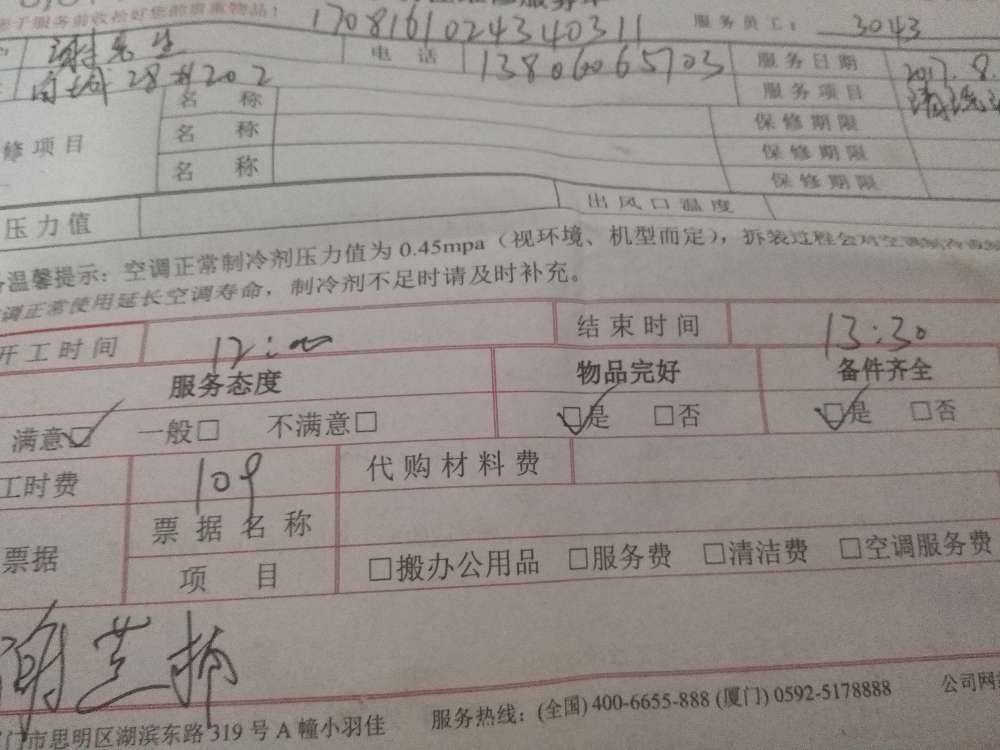 于服务前收拾好您的贵重物品！ 1708161024340311 服务员工： 3043
谢先生 电话 13806065703 服务日期 2017.8.
28#202 名称 服务项目 清洗
修项目 名称 保修期限
名称 保修期限
保修期限
压力值 出风口温度
温馨提示：空调正常制冷剂压力值为 0.45mpa（视环境、机型而定），拆装过程会对空调制冷
调正常使用延长空调寿命，制冷剂不足时请及时补充。
开工时间 12:00 结束时间 13:30
服务态度 物品完好 备件齐全
满意☑ 一般□ 不满意□ ☑是 □否 ☑是 □否
工时费 109 代购材料费
票据 票据名称
项目 □搬办公用品 □服务费 □清洁费 □空调服务费
谢芝
门市思明区湖滨东路 319 号 A 幢小羽佳 服务热线：(全国) 400-6655-888 (厦门) 0592-5178888 公司网